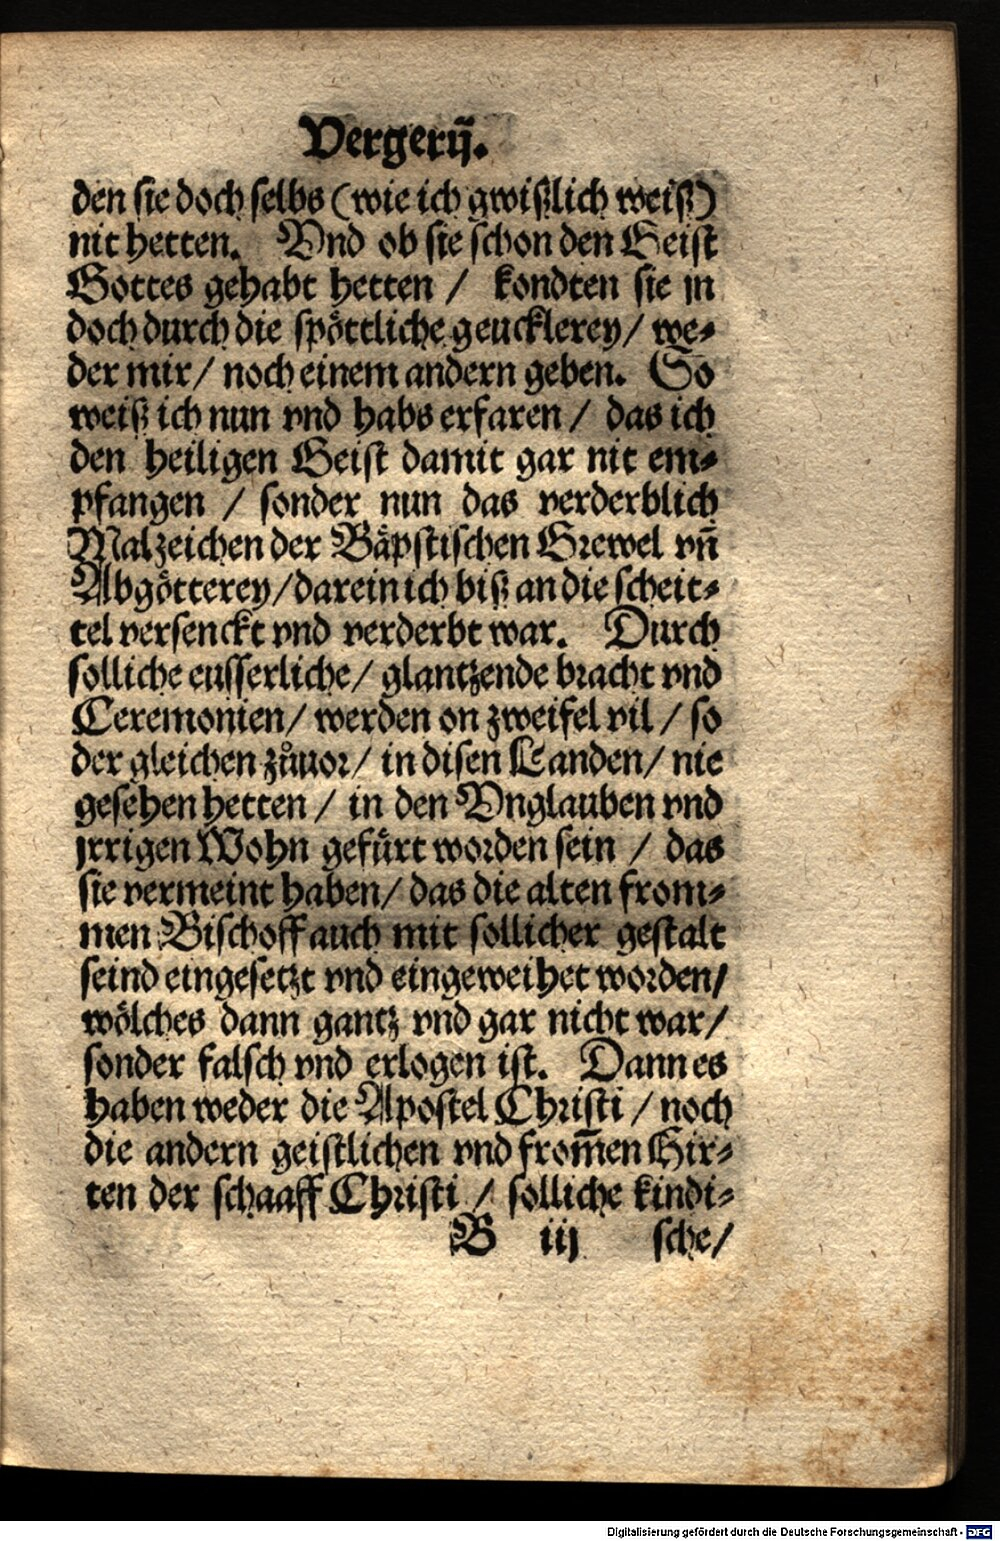 Vergerij̃.
den sie doch selbs (wie ich gwißlich weiß)
nit hetten. Vnd ob sie schon den Geist
Gottes gehabt hetten / kondten sie jn
doch durch die spöttliche geucklerey/ we⸗
der mir/ noch einem andern geben. So
weiß ich nun vnd habs erfaren / das ich
den heiligen Geist damit gar nit em⸗
pfangen / sonder nun das verderblich
Malzeichen der Bäpstischen Grewel vñ
Abgötterey/darein ich biß an die scheit⸗
tel versenckt vnd verderbt war. Durch
solliche eusserliche/ glantzende bracht vnd
Ceremonien/ werden on zweifel vil / so
der gleichen zůuor/ in disen Landen/ nie
gesehen hetten / in den Vnglauben vnd
jrrigen Wohn gefürt worden sein / das
sie vermeint haben/ das die alten from⸗
men Bischoff auch mit sollicher gestalt
seind eingesetzt vnd eingeweihet worden/
wölches dann gantz vnd gar nicht war/
sonder falsch vnd erlogen ist. Dann es
haben weder die Apostel Christi / noch
die andern geistlichen vnd from̃en Hir⸗
ten der schaaff Christi / solliche kindi⸗
B iij sche/
Digitalisierung gefördert durch die Deutsche Forschungsgemeinschaft - DFG